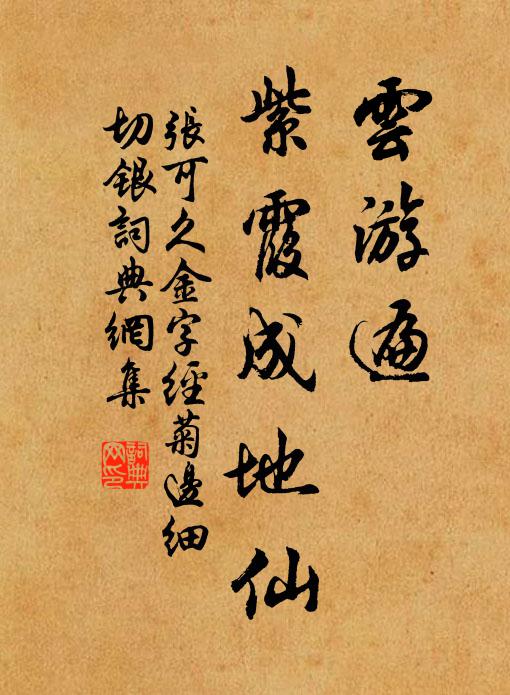 雲游遍
紫霞成地仙
張可久金字經菊邊細
切銀詞典網集
詞典
网印